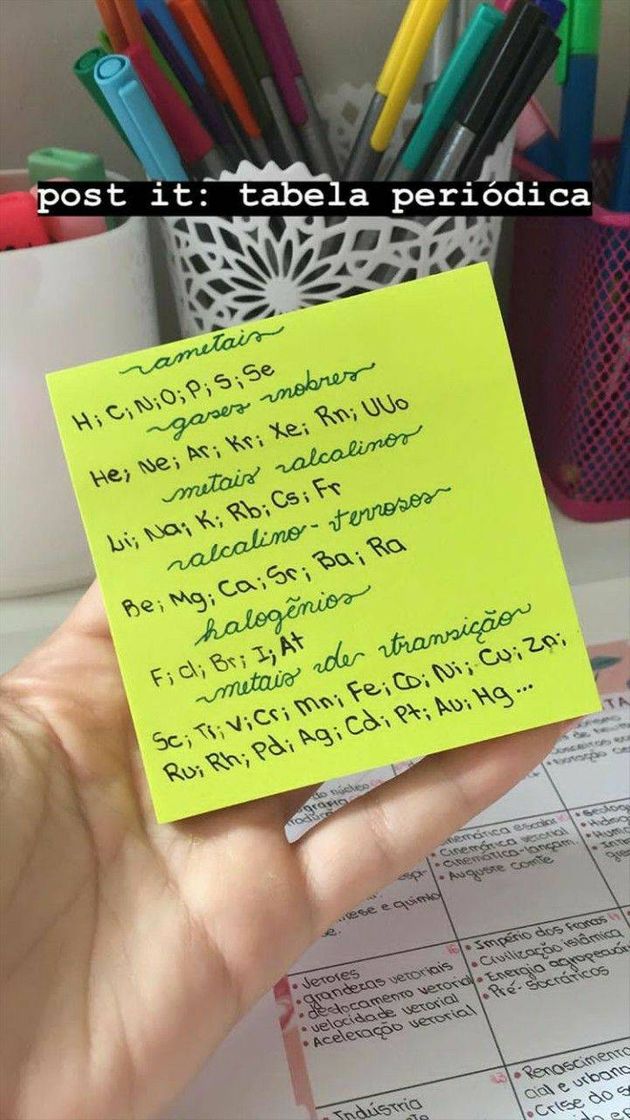 post it: tabela periódica
ametais
H; C; N; O; P; S; Se
gases nobres
He; Ne; Ar; Kr; Xe; Rn; UUo
metais alcalinos
Li; Na; K; Rb; Cs; Fr
alcalino-terrosos
Be; Mg; Ca; Sr; Ba; Ra
halogênios
F; Cl; Br; I; At
metais de transição
Sc; Ti; V; Cr; Mn; Fe; Co; Ni; Cu; Zn;
Ru; Rh; Pd; Ag; Cd; Pt; Au; Hg...
do núcleo
• Cinemática escalar
• Cinemática vetorial
• cinemática-lançam.
• Auguste comte
• Vetores
• grandezas vetoriais
• deslocamento vetorial
• velocidade vetorial
• Aceleração vetorial
• Império dos francos
• Civilização islâmica
• Energia agropecuár
• Pré-socráticos
• Indústria
• Renascimento
cial e urbano
• Crise do s